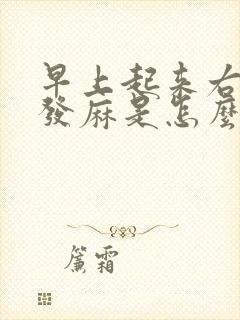 早上起来右
發麻是怎麼
簾霜